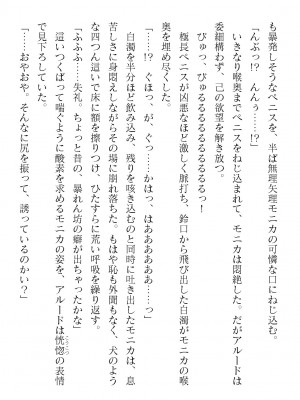 も暴発しそうなペニスを、半ば無理矢理モニカの可憐な口にねじ込む。
「んぶっ!? んんっ……!?」
いきなり喉奥までペニスをねじ込まれて、モニカは悶絶した。だがアルードは
委細構わず、己の欲望を解き放つ。
びゅっ、びゅるるるるるるるるるぅっ!
極長ペニスが凶悪なほど激しく脈打ち、鈴口から飛び出した白濁がモニカの喉
奥を埋め尽くした。
「……!? ぐほっ、がっ、ぐっ……かはっ、はぁあぁあぁ……っ」
白濁を半分ほど飲み込み、残りを咳き込むのと同時に吐き出したモニカは、息
苦しさに身悶えしながらその場に崩れ落ちた。もはや恥も外聞もなく、犬のよう
な四つん這いで床に額を擦りつけ、ひたすらに荒い呼吸を繰り返す。
「ふふふ……失礼。ちょっと昔の、暴れん坊の癖が出ちゃったかな」
這いつくばって喘ぐように酸素を求めるモニカの姿を、アルードは恍惚の表情
で見下ろしていた。
「……おやおや、そんなに尻を振って、誘っているのかい?」